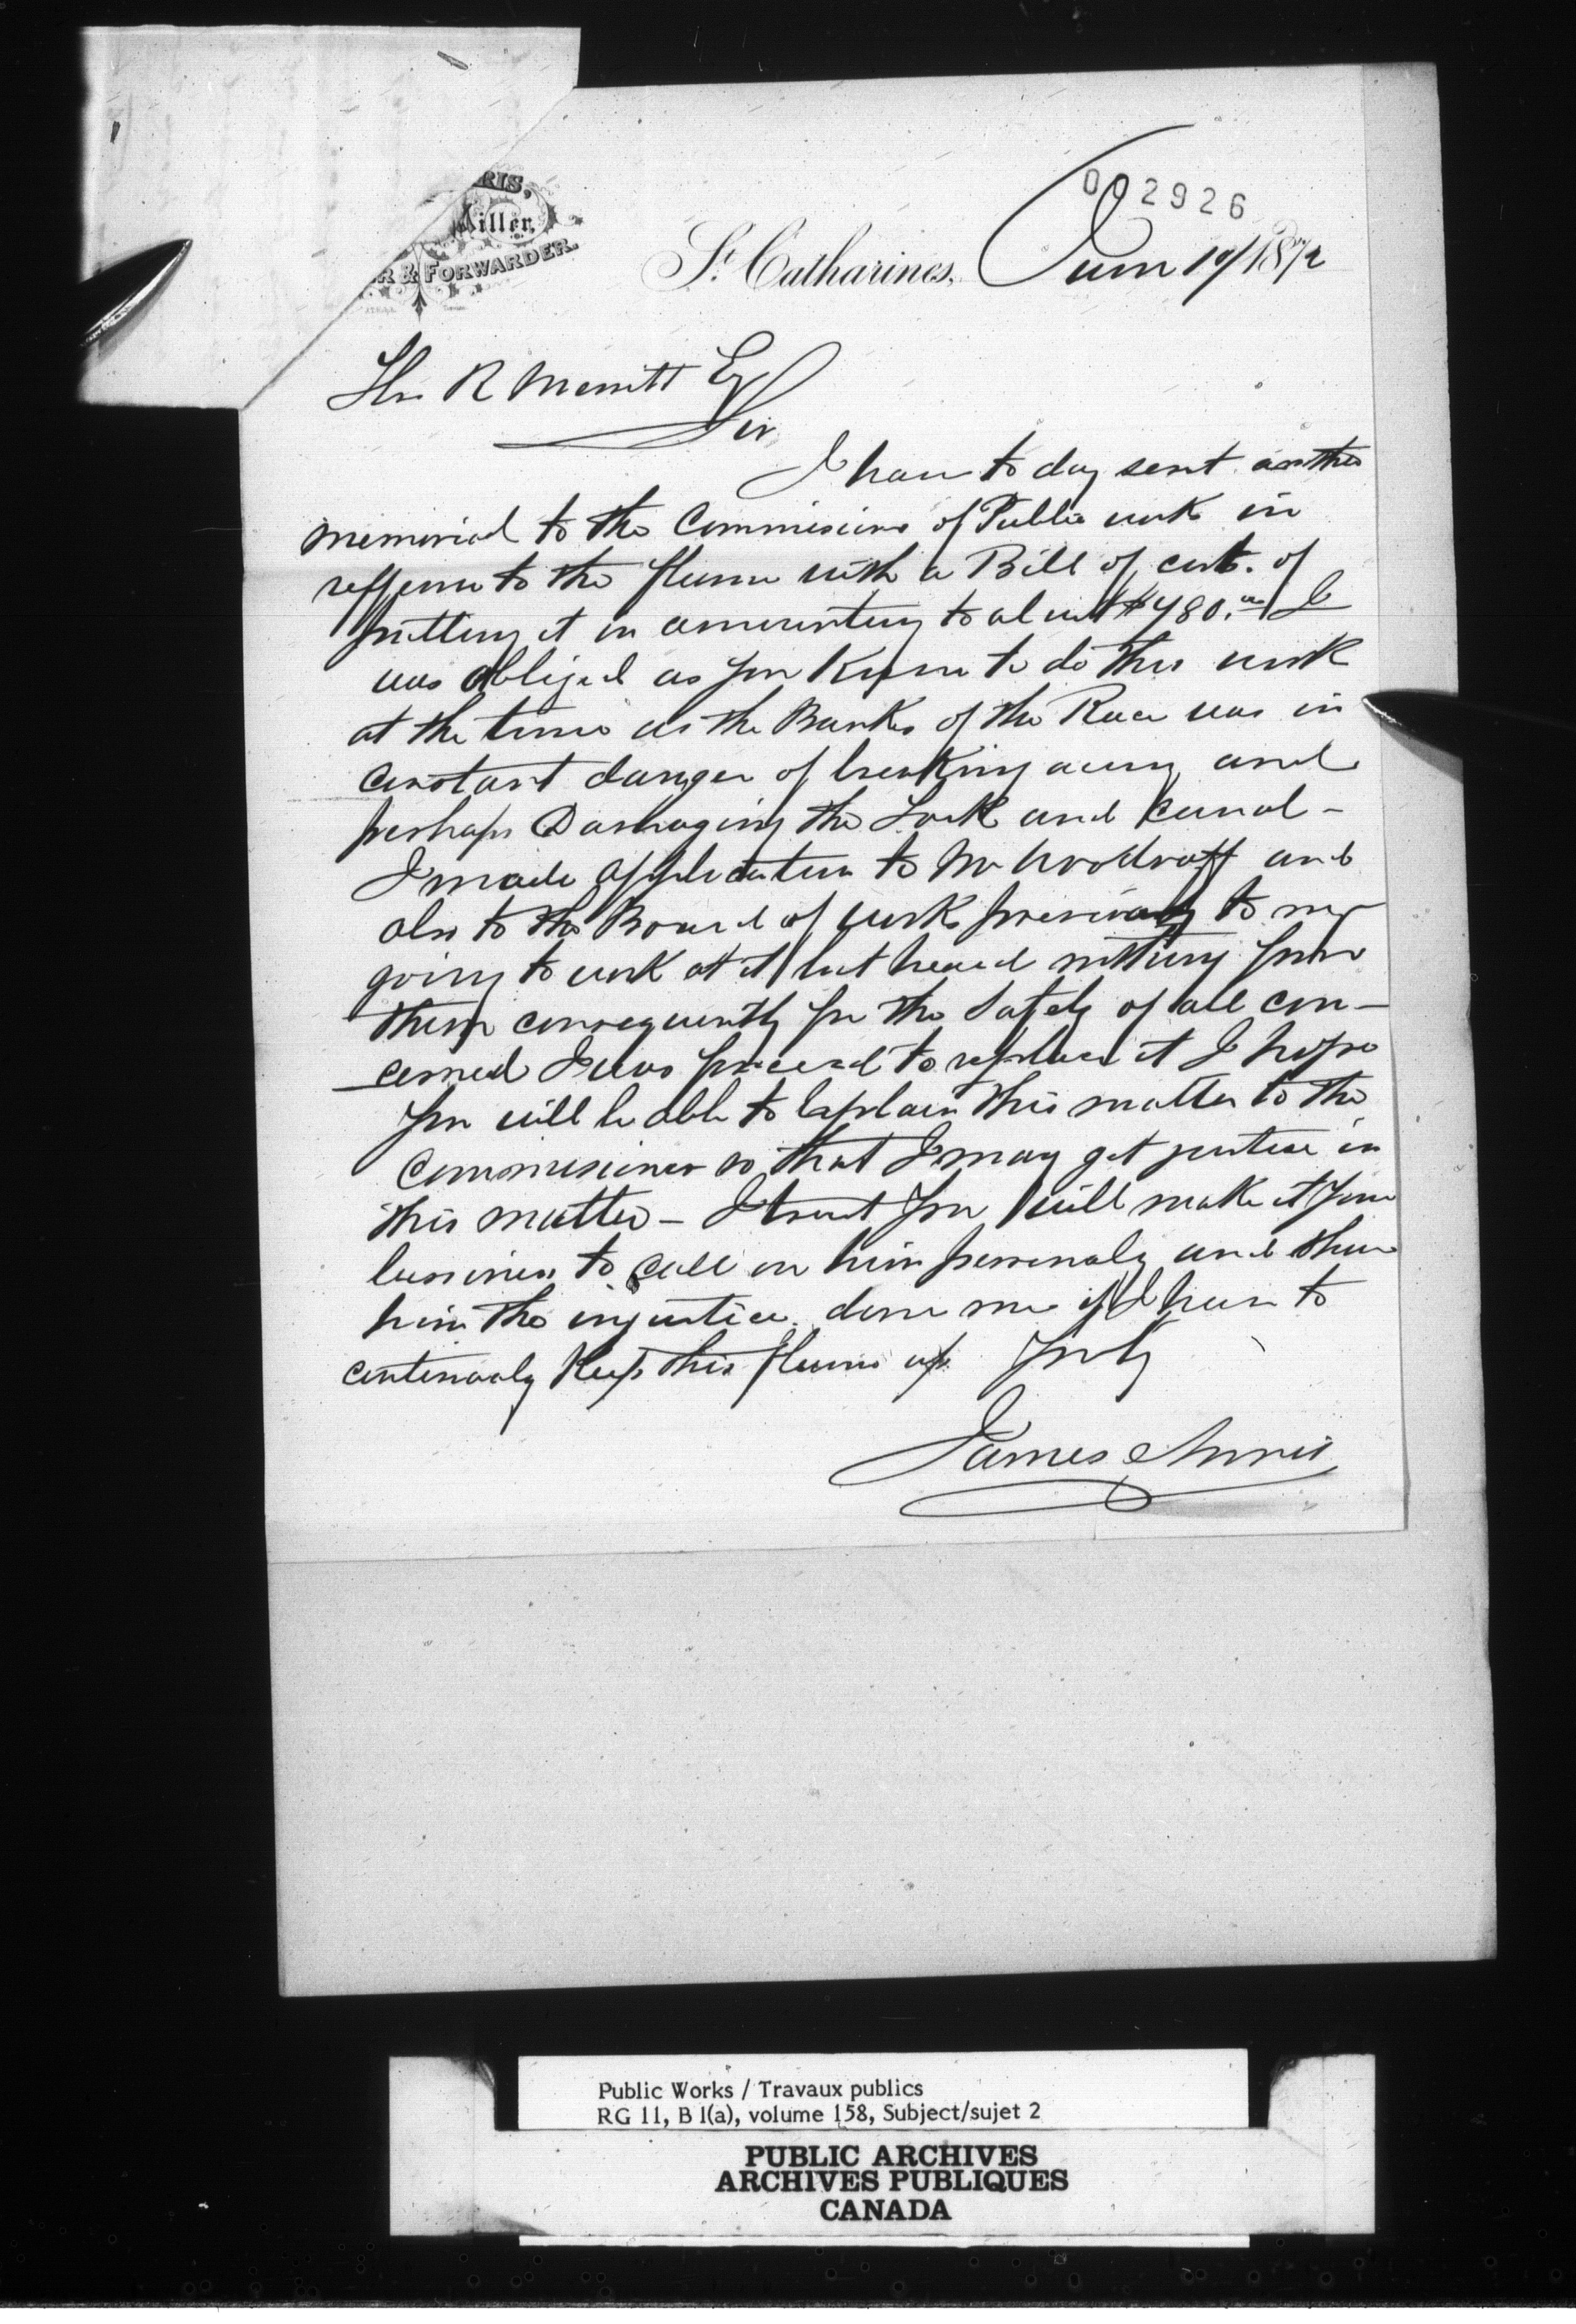 002926
RIS,
Miller,
R & FORWARDER.
St. Catharines, June 19/1872
Thos R Merritt Esq
Sir
I have to day sent another
memorial to the Commisioner of Public work in
refference to the flume with a Bill of cost. of
putting it in amounting to about $780.00 I
was obliged as you know to do this work
at the time as the Banks of the Race was in
constant danger of breaking away and
perhaps Damaging the Lock and Canal -
I made application to Mr Woodruff and
also to the Board of works previously to my
going to work at it but heard nothing from
them consequently for the safety of all con-
cerned I was forced to replace it I hope
you will be able to Explain this matter to the
Commisioner so that I may get justice in
this matter - I trust you will make it your
business to call on him personaly and show
him the injustice done me if I have to
continualy Keep this flume up. Truly
James Norris
Public Works / Travaux publics
RG 11, B 1(a), volume 158, Subject/sujet 2
PUBLIC ARCHIVES
ARCHIVES PUBLIQUES
CANADA